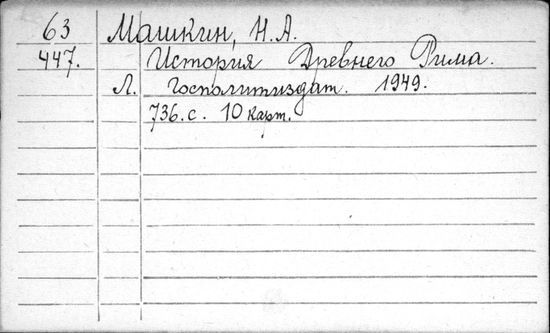 63 Машкин, Н.А.
447. История Древнего Рима.
Л. Госполитиздат. 1949.
736.с. 10 карт.